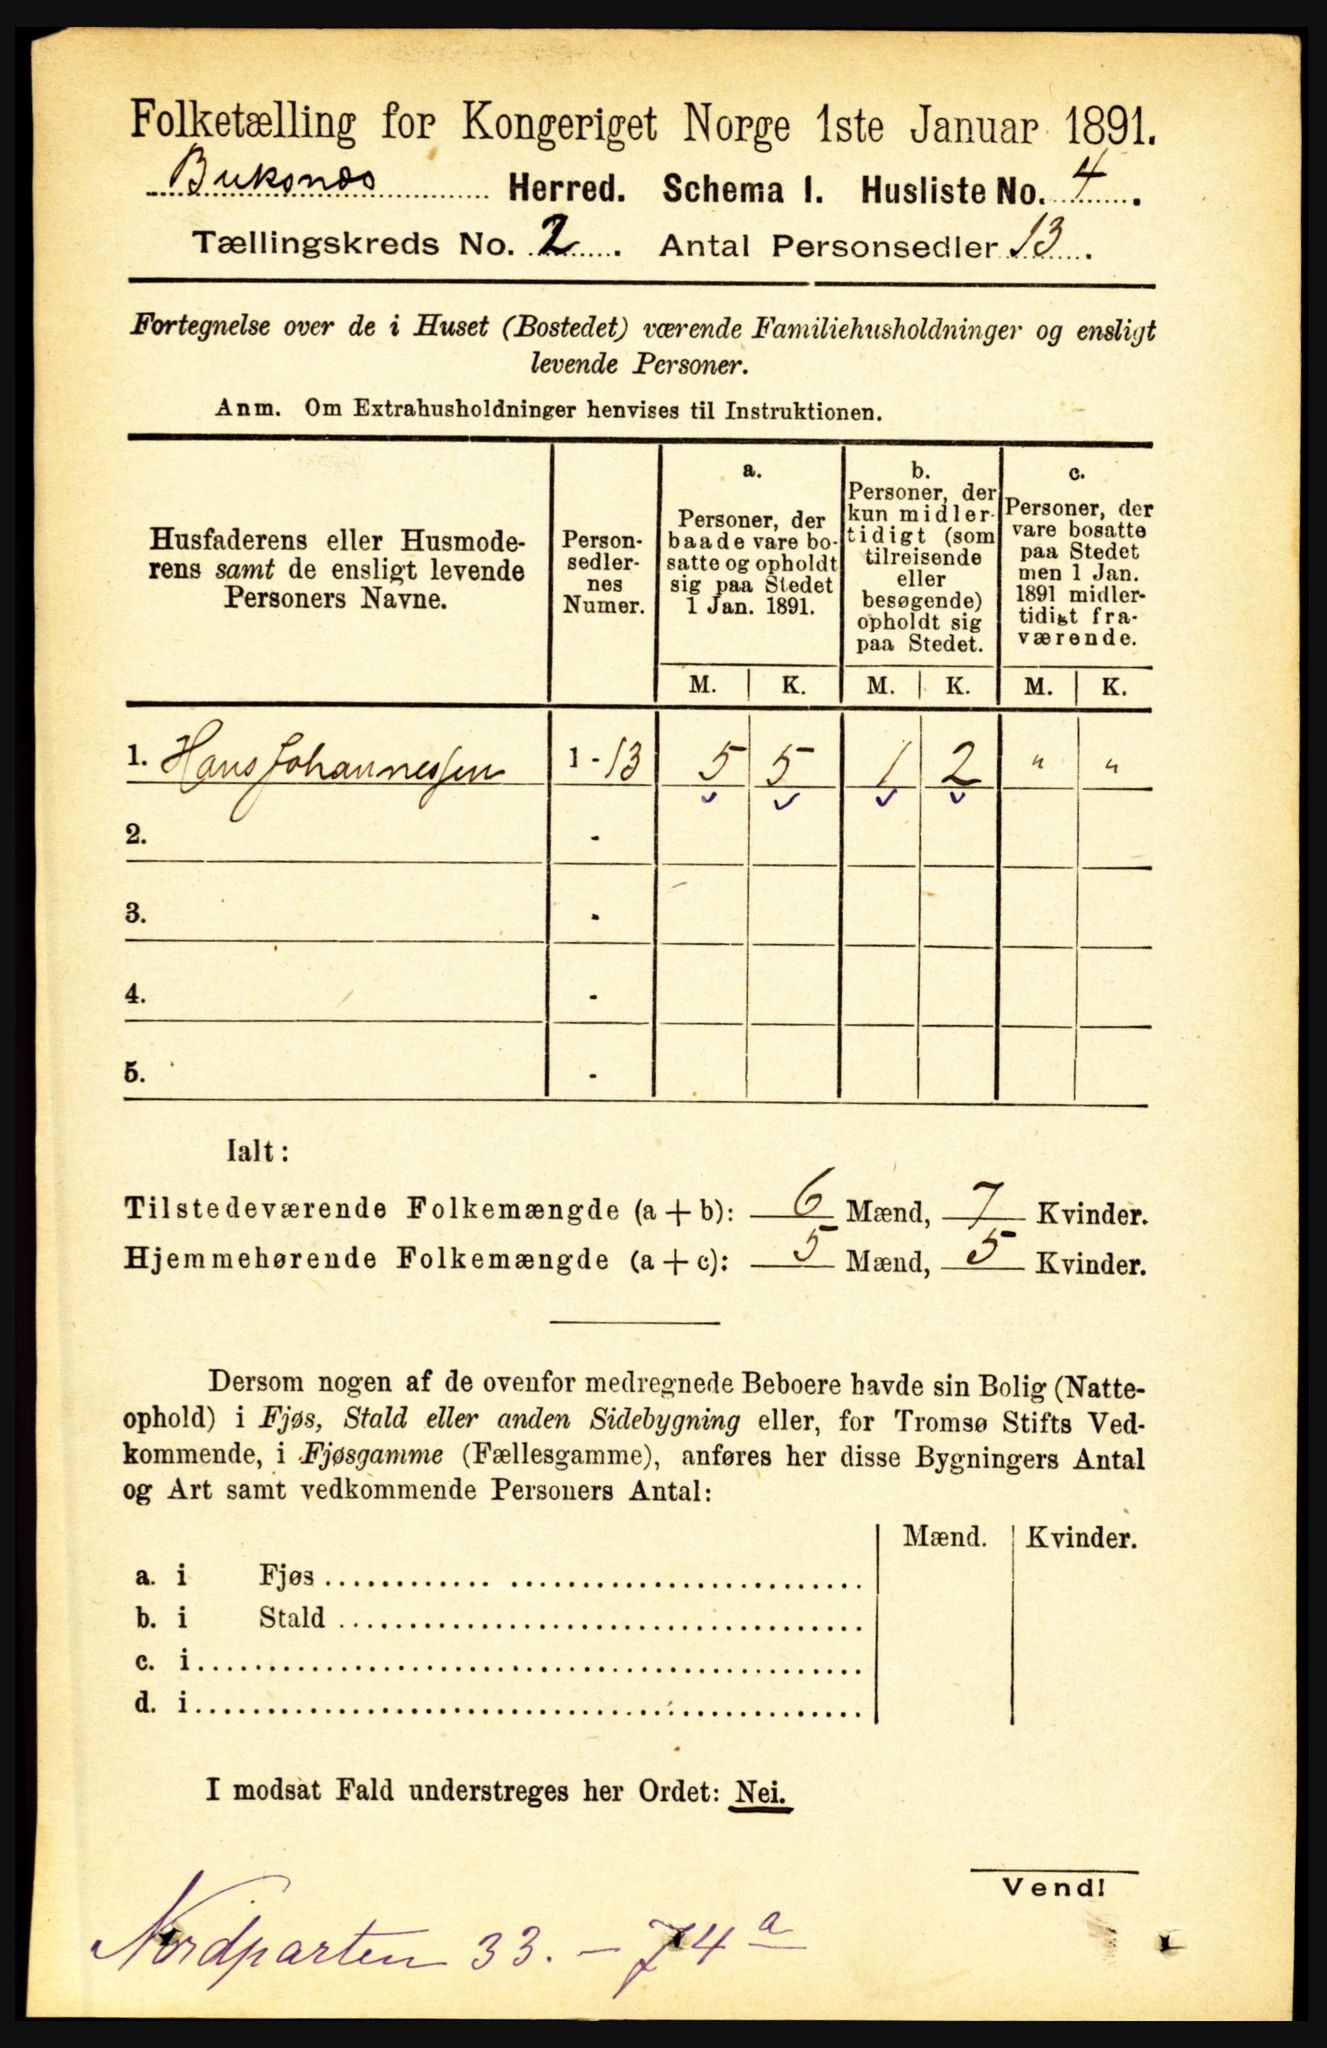 Folketælling for Kongeriget Norge 1ste Januar 1891.
Buksnæs Herred. Schema I. Husliste No. 4.
Tællingskreds No. 2. Antal Personsedler 13.
Fortegnelse over de i Huset (Bostedet) værende Familiehusholdninger og ensligt
levende Personer.
Anm. Om Extrahusholdninger henvises til Instruktionen.
Husfaderens eller Husmode-
rens samt de ensligt levende
Personers Navne.
Person-
sedler-
nes
Numer.
a.
Personer, der
baade vare bo-
satte og opholdt
sig paa Stedet
1 Jan. 1891.
b.
Personer, der
kun midler-
tidigt (som
tilreisende
eller
besøgende)
opholdt sig
paa Stedet.
c.
Personer, der
vare bosatte
paa Stedet
men 1 Jan.
1891 midler-
tidigt fra-
værende.
M. K. M. K. M. K.
1. Hans Johannessen 1 - 13 5 5 1 2 " "
2. -
3. -
4. -
5. -
Ialt:
Tilstedeværende Folkemængde (a + b): 6 Mænd, 7 Kvinder.
Hjemmehørende Folkemængde (a + c): 5 Mænd, 5 Kvinder.
Dersom nogen af de ovenfor medregnede Beboere havde sin Bolig (Natte-
ophold) i Fjøs, Stald eller anden Sidebygning eller, for Tromsø Stifts Ved-
kommende, i Fjøsgamme (Fællesgamme), anføres her disse Bygningers Antal
og Art samt vedkommende Personers Antal:
Mænd. Kvinder.
a. i Fjøs
b. i Stald
c. i
d. i
I modsat Fald understreges her Ordet: Nei.
Vend!
Nordparten 33. - 74 a